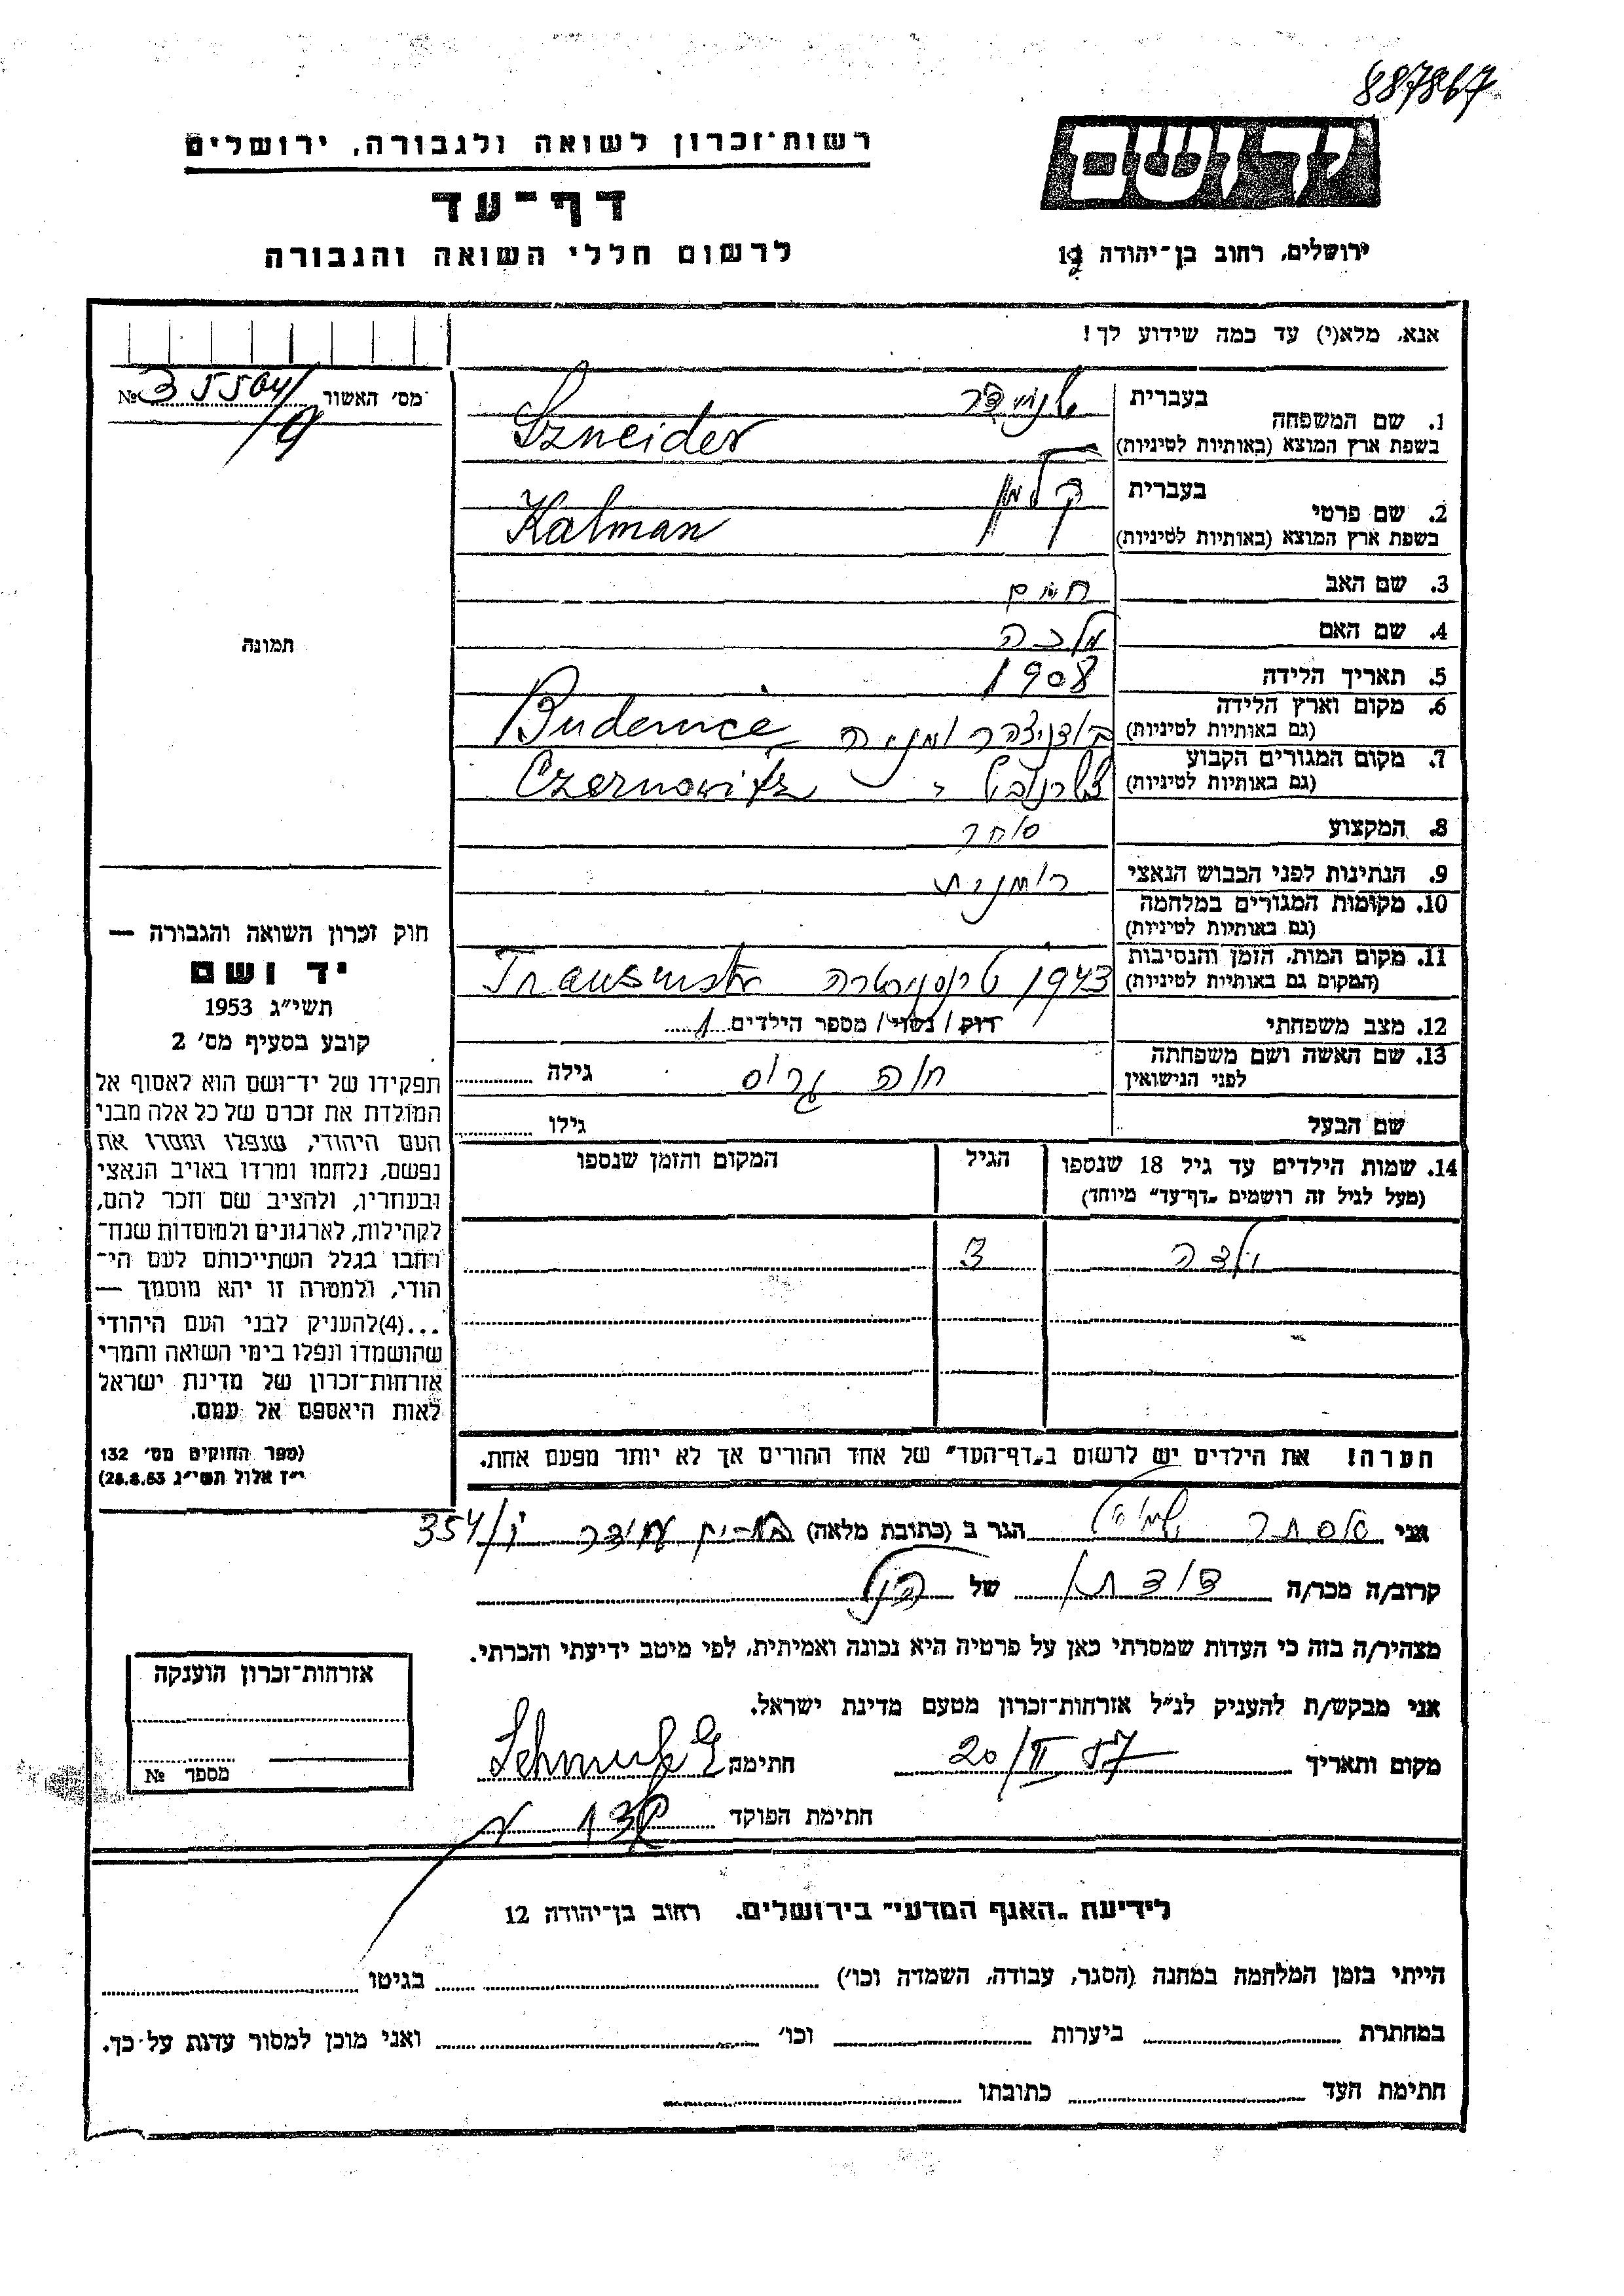 887867
רשות־זכרון לשואה ולגבורה, ירושלים
דף־עד
לרשום חללי השואה והגבורה
יד ושם
ירושלים, רחוב בן־יהודה 12
אנא, מלא(י) עד כמה שידוע לך!
מס׳ האשור № 35504/9
1. שם המשפחה
בעברית שניידר
בשפת ארץ המוצא (באותיות לטיניות) Szneider
2. שם פרטי
בעברית קלמן
בשפת ארץ המוצא (באותיות לטיניות) Kalman
3. שם האב חיים
4. שם האם מלכה
5. תאריך הלידה 1908
6. מקום וארץ הלידה
(גם באותיות לטיניות) בודניצה רומניה Budenice
7. מקום המגורים הקבוע
(גם באותיות לטיניות) צרנוביץ Czernowitz
8. המקצוע סוחר
9. הנתינות לפני הכבוש הנאצי רומנית
10. מקומות המגורים במלחמה
(גם באותיות לטיניות)
11. מקום המות, הזמן והנסיבות
(המקום גם באותיות לטיניות) 1943 טרנסניסטרה
12. מצב משפחתי רוק / נשוי / מספר הילדים 1
13. שם האשה ושם משפחתה
לפני הנישואין חוה גרוס גילה
שם הבעל גילו
14. שמות הילדים עד גיל 18 שנספו
(מעל לגיל זה רושמים „דף־עד” מיוחד)
הגיל
המקום והזמן שנספו
ילדה 3
הערה! את הילדים יש לרשום ב„דף־העד” של אחד ההורים אך לא יותר מפעם אחת.
תמונה
חוק זכרון השואה והגבורה —
יד ושם
תשי״ג 1953
קובע בסעיף מס׳ 2
תפקידו של יד־ושם הוא לאסוף אל
המולדת את זכרם של כל אלה מבני
העם היהודי, שנפלו ומסרו את
נפשם, נלחמו ומרדו באויב הנאצי
ובעוזריו, ולהציב שם וזכר להם,
לקהילות, לארגונים ולמוסדות שנח־
רבו בגלל השתייכותם לעם הי־
הודי, ולמטרה זו יהא מוסמך —
...(4) להעניק לבני העם היהודי
שהושמדו ונפלו בימי השואה והמרי
אזרחות־זכרון של מדינת ישראל
לאות היאספם אל עמם.
(ספר החוקים מס׳ 132
י״ז אלול תשי״ג 28.8.53)
אני אסתר הגר ב (כתובת מלאה) 354/
קרוב/ה מכר/ה דודתו של הנ״ל
מצהיר/ה בזה כי העדות שמסרתי כאן על פרטיה היא נכונה ואמיתית, לפי מיטב ידיעתי והכרתי.
אני מבקש/ת להעניק לנ״ל אזרחות־זכרון מטעם מדינת ישראל.
מקום ותאריך 20/II 57 חתימה
חתימת הפוקד
אזרחות־זכרון הוענקה
מספר №
לידיעת „האגף המדעי” בירושלים. רחוב בן־יהודה 12
הייתי בזמן המלחמה במחנה (הסגר, עבודה, השמדה וכו׳) בגיטו
במחתרת ביערות וכו׳ ואני מוכן למסור עדות על כך.
חתימת העד כתובתו